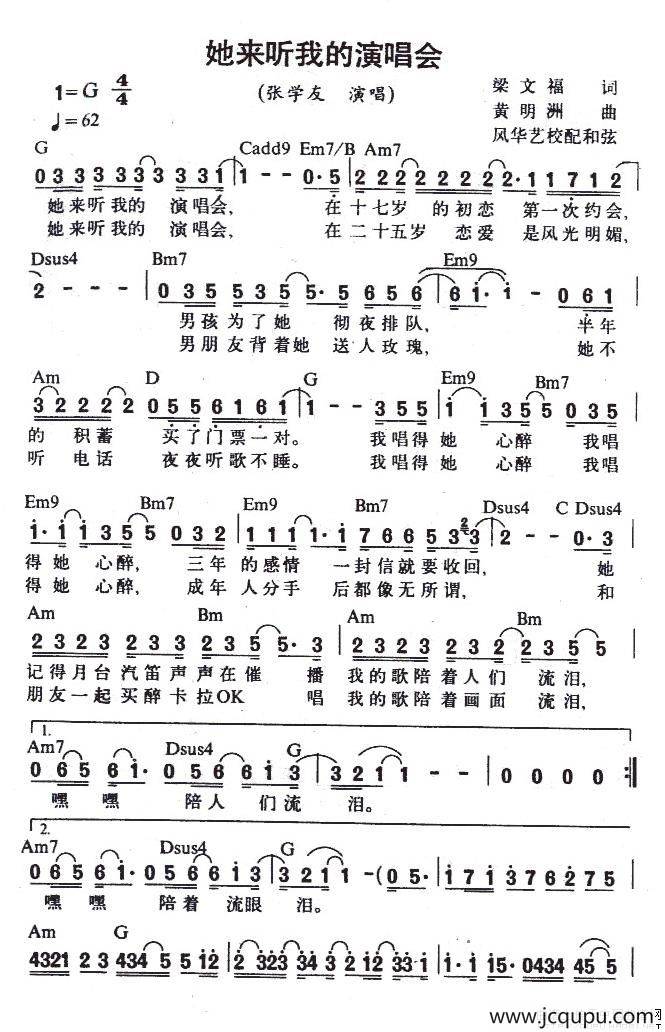 她来听我的演唱会
1=G 4/4
(张学友 演唱)
梁文福 词
♩=62
黄明洲 曲
风华艺校配和弦
G Cadd9 Em7/B Am7
0 3 3 3 3 3 3 3 3 1 | 1 - - 0·5 | 2 2 2 2 2 2 2 2·1 1 7 1 2 |
她来听我的 演唱会, 在十七岁 的初恋 第一次约会,
她来听我的 演唱会, 在二十五岁 恋爱 是风光明媚,
Dsus4 Bm7 Em9
2 - - - | 0 3 5 5 3 5 5· 5 6 5 6 | 6 1· 1 - 0 6 1 |
男孩为了她 彻夜排队, 半年
男朋友背着她 送人玫瑰, 她不
Am D G Em9 Bm7
3 2 2 2 2 0 5 5 6 1 6 1 | 1 - - 3 5 5 | 1 1 3 5 5 0 3 5 |
的 积蓄 买了门票一对。 我唱得她 心醉 我唱
听 电话 夜夜听歌不睡。 我唱得她 心醉 我唱
Em9 Bm7 Em9 Bm7 Dsus4 C Dsus4
1· 1 1 3 5 5 0 3 2 | 1 1 1 1·1 7 6 6 5 5 3 | 2 - - 0·3 |
得她 心醉, 三年 的感情 一封信就要收回, 她
得她 心醉, 成年 人分手 后都像无所谓, 和
Am Bm Am Bm
2 3 2 3 2 3 2 3 5 5·3 | 2 3 2 3 2 3 2 2 3 5 5 |
记得月台汽笛声声在催 播 我的歌陪着人们 流泪,
朋友一起买醉卡拉OK 唱 我的歌陪着画面 流泪,
1.
Am7 Dsus4 G
0 6 5 6 1· 0 5 6 6 1 3 | 3 2 1 1 - - | 0 0 0 0 :|
嘿 嘿 陪人 们流 泪。
2.
Am7 Dsus4 G
0 6 5 6 1· 0 5 6 6 1 3 | 3 2 1 1 -(0 5· | 1 7 1 3 7 6 2 7 5 |
嘿 嘿 陪着 流眼 泪。
Am G
4321 2 3 434 5 5 12 | 2 323 34 3 2 12 33·1 | 1·1 15·0434 45 5 |
www.jcqupu.com